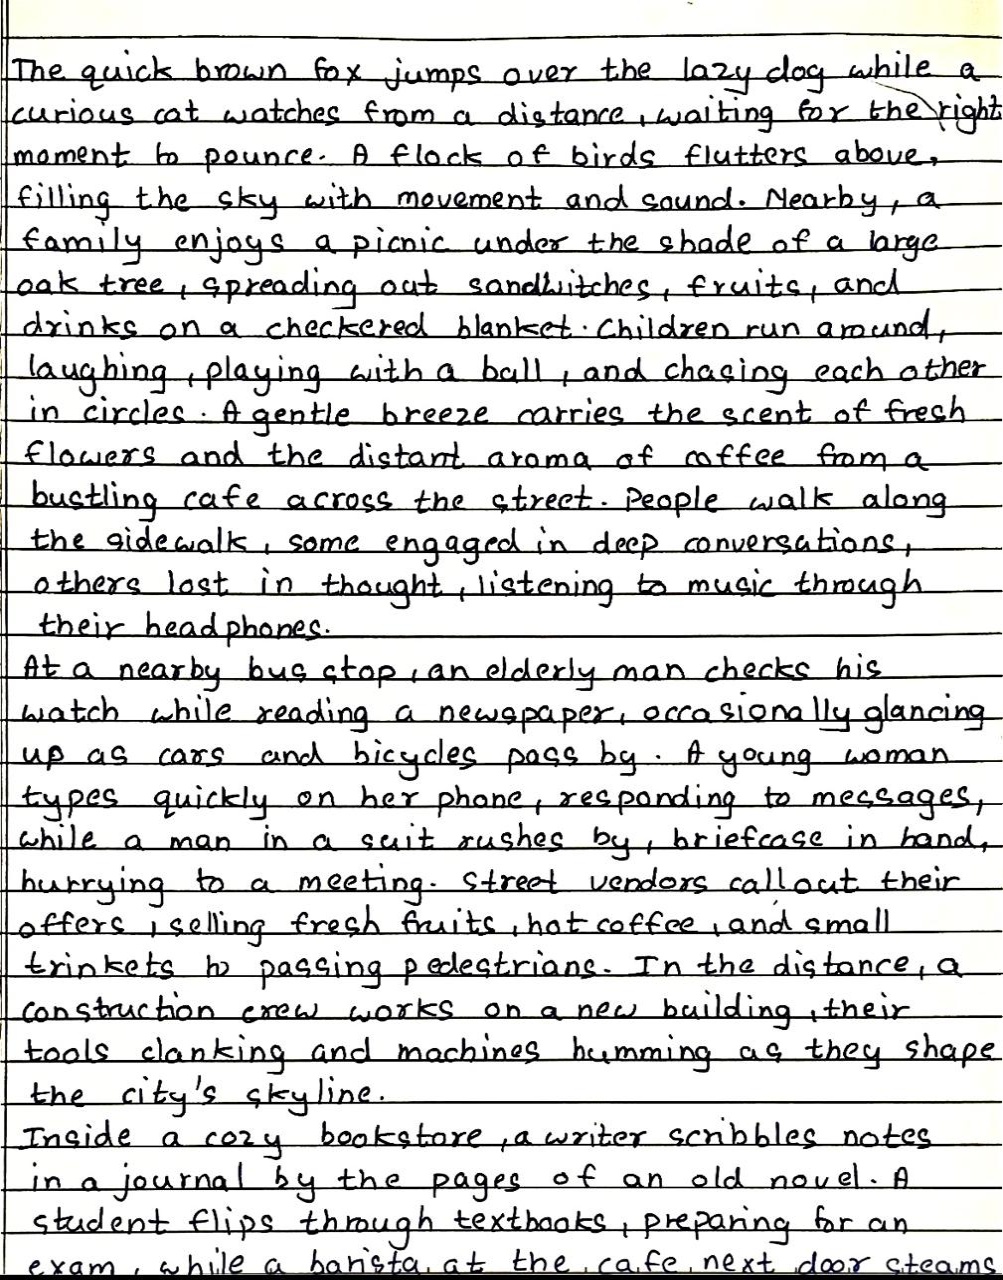 The quick brown fox jumps over the lazy dog while a
curious cat watches from a distance, waiting for the right
moment to pounce. A flock of birds flutters above,
filling the sky with movement and sound. Nearby, a
family enjoys a picnic under the shade of a large
oak tree, spreading out sandwitches, fruits, and
drinks on a checkered blanket. Children run around,
laughing, playing with a ball, and chasing each other
in circles. A gentle breeze carries the scent of fresh
flowers and the distant aroma of coffee from a
bustling cafe across the street. People walk along
the sidewalk, some engaged in deep conversations,
others lost in thought, listening to music through
their headphones.
At a nearby bus stop, an elderly man checks his
watch while reading a newspaper, occasionally glancing
up as cars and bicycles pass by. A young woman
types quickly on her phone, responding to messages,
while a man in a suit rushes by, briefcase in hand,
hurrying to a meeting. Street vendors call out their
offers, selling fresh fruits, hot coffee, and small
trinkets to passing pedestrians. In the distance, a
construction crew works on a new building, their
tools clanking and machines humming as they shape
the city's skyline.
Inside a cozy bookstore, a writer scribbles notes
in a journal by the pages of an old novel. A
student flips through textbooks, preparing for an
exam, while a barista at the cafe next door steams